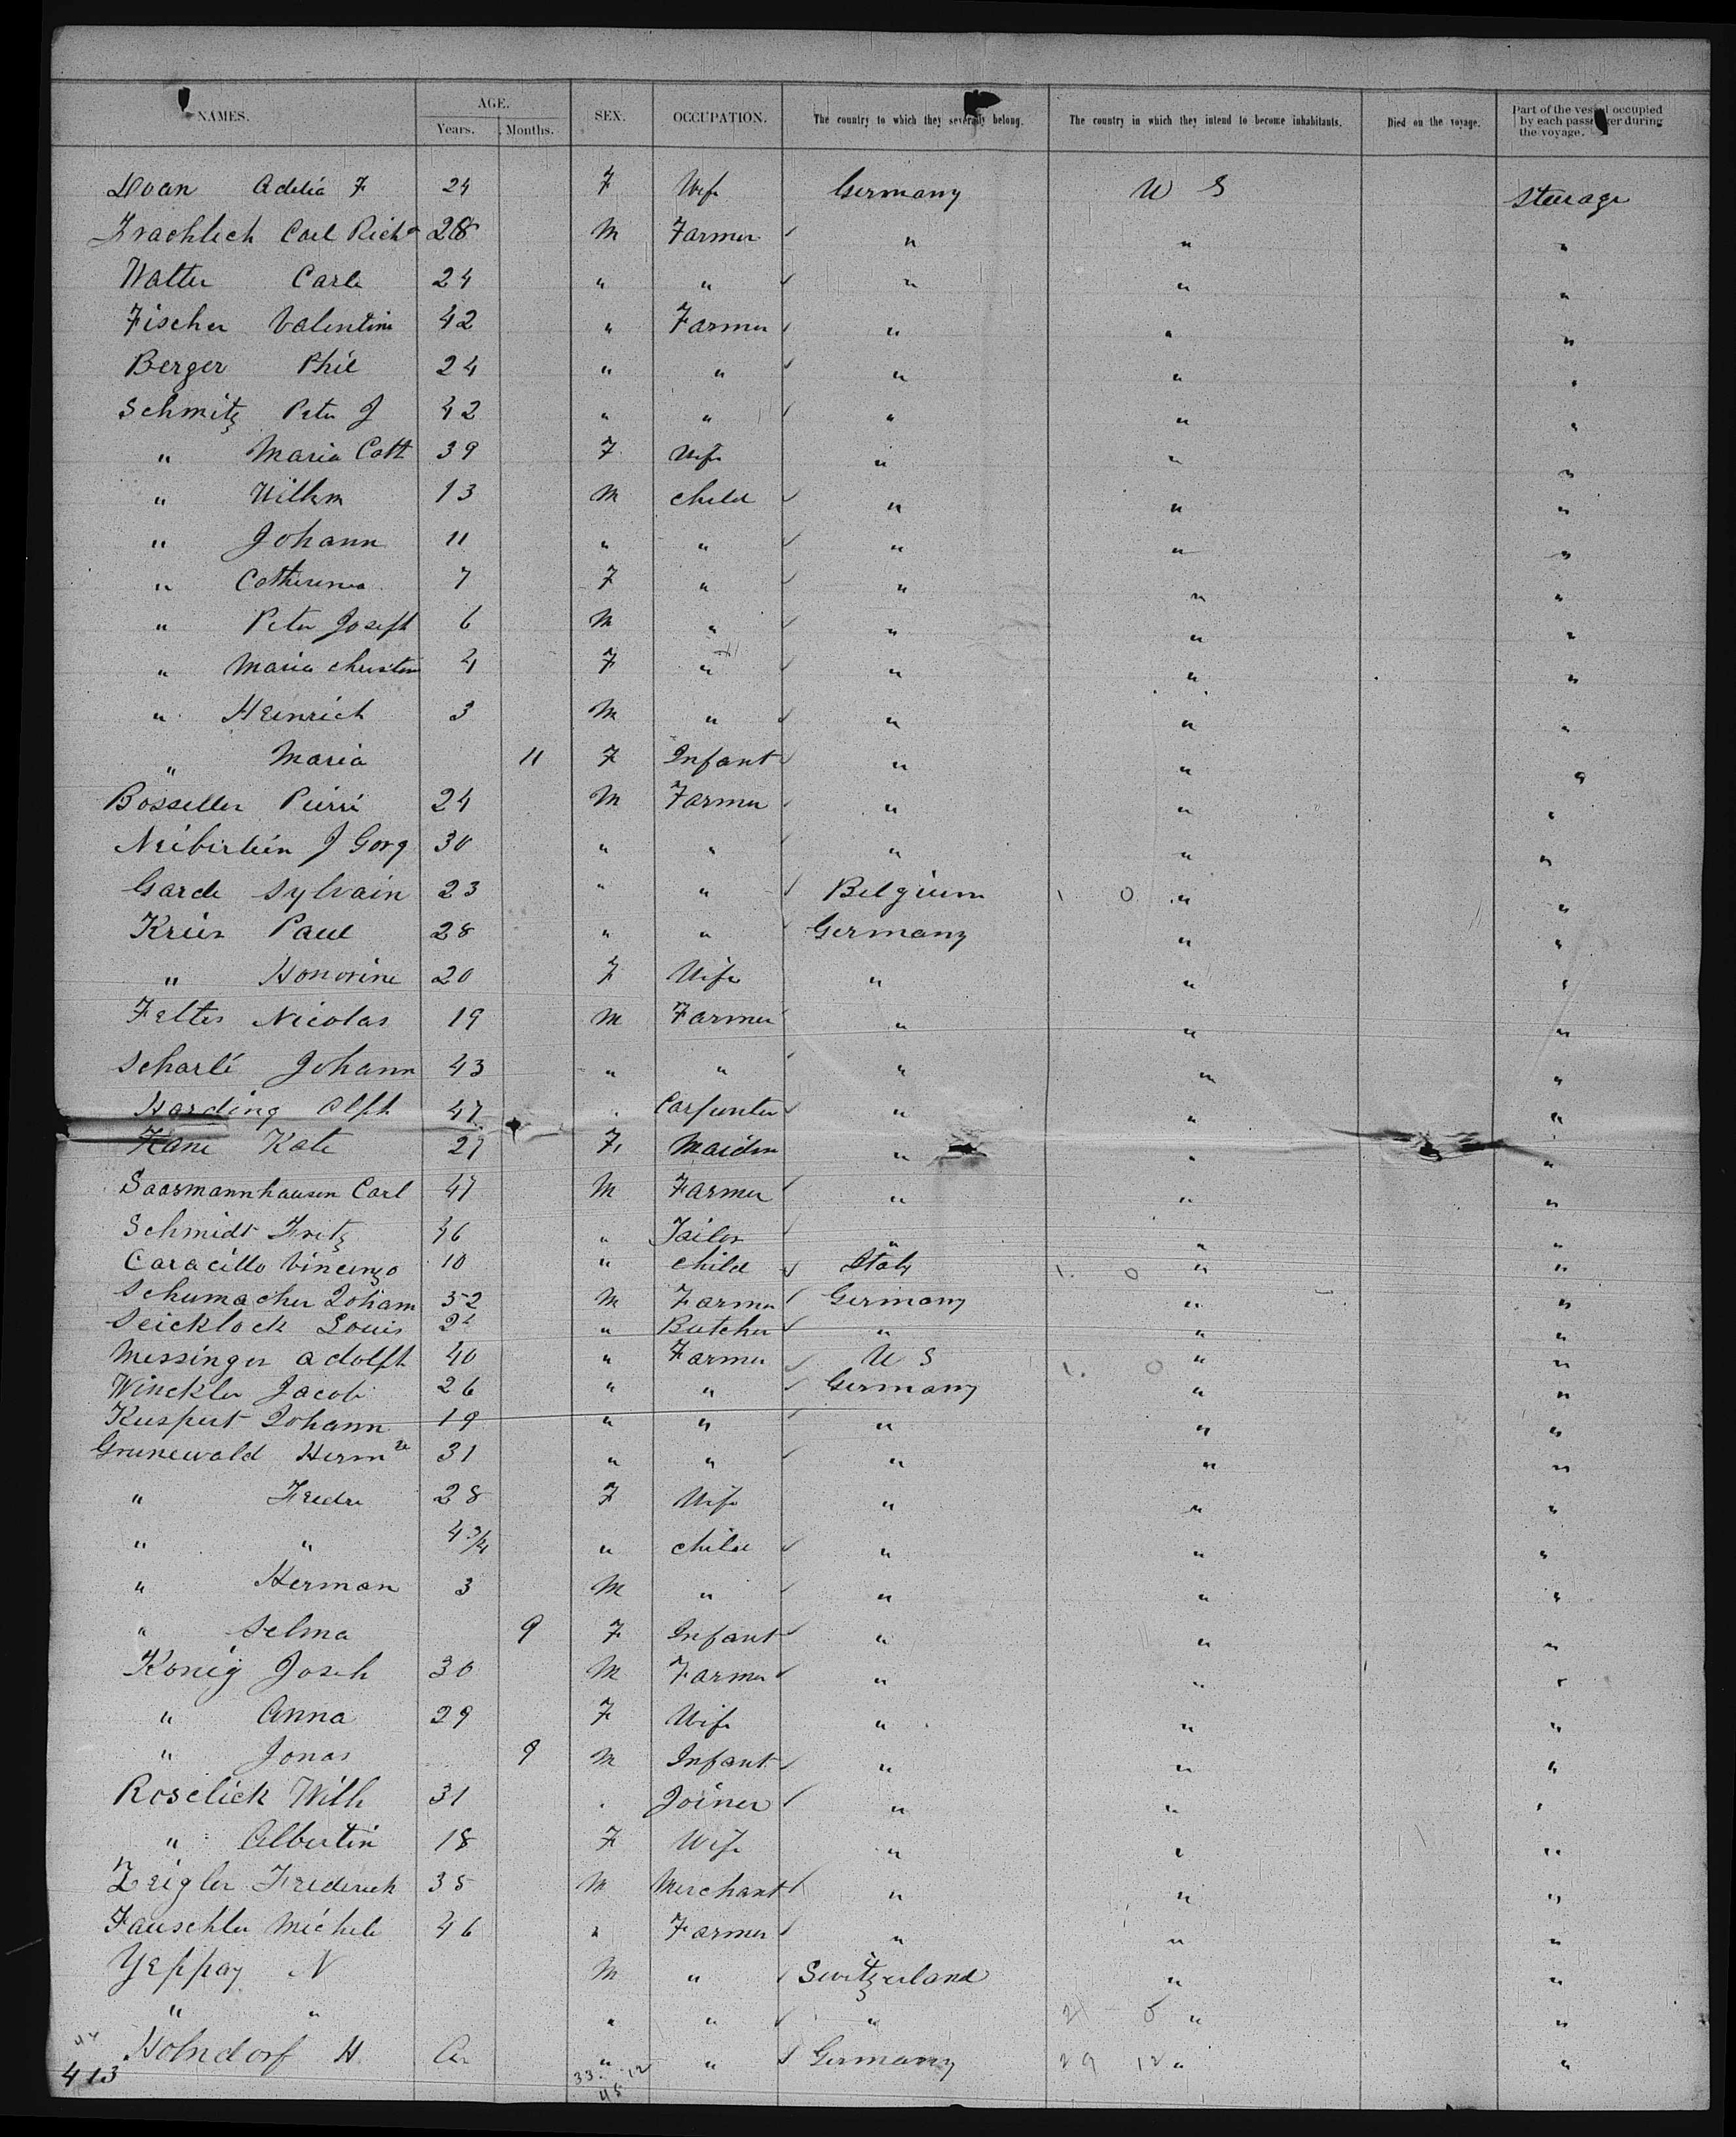 NAMES. AGE. Years. Months. SEX. OCCUPATION. The country to which they severally belong. The country in which they intend to become inhabitants. Died on the voyage. Part of the vessel occupied by each passenger during the voyage.
Doan Adelia F 24 F Wife Germany U S Steerage
Frachlich Carl Richd 28 M Farmer " " "
Walter Carle 24 " " " " "
Fischer Valentine 42 " Farmer " " "
Berger Phil 24 " " " " "
Schmitz Peter J 42 " " " " "
" Maria Cath 39 F Wife " " "
" Wilhm 13 M child " " "
" Johann 11 " " " " "
" Catherina 7 F " " " "
" Peter Joseph 6 M " " " "
" Maria christin 4 F " " " "
" Heinrich 3 M " " " "
" Maria 11 F Infant " " "
Bosseller Pierre 24 M Farmer " " "
Neibirlein J Gorg 30 " " " " "
Garde Sylvain 23 " " Belgium 1 0 " "
Krein Paul 28 " " Germany " "
" Honorine 20 F Wife " " "
Feltes Nicolas 19 M Farmer " " "
Scharlé Johann 43 " " " " "
Harding Alph 47 " Carpenter " " "
Kane Kate 27 F Maiden " " "
Saarmannhausen Carl 47 M Farmer " " "
Schmidt Fritz 46 " Tailor " " "
Caracillo Vincenzo 10 " child Italy 1. 0 " "
Schumacher Johann 52 M Farmer Germany " "
Seicklock Louis " Butcher " " "
Messinger Adolph 40 " Farmer U S 1. 0 " "
Winckler Jacob 26 " " Germany " "
Kuspert Johann 19 " " " " "
Grunewald Hermn 31 " " " " "
" Fredre 28 F Wife " " "
" " 4 3/4 " child " " "
" Herman 3 M " " " "
" Selma 9 F Infant " " "
Konig Joseh 30 M Farmer " " "
" Anna 29 F Wife " " "
" Jonas 9 M Infant " " "
Roselick Wilh 31 " Joiner " " "
" Albertin 18 F Wife " " "
Zeigler Frederick 35 M Merchant " " "
Fauschler Michele 46 " Farmer " " "
Yeppay N M " Switzerland " "
" " " " " 2 0 " "
Holndorf H " " Germany 29 12 " "
44
413 33 12
45